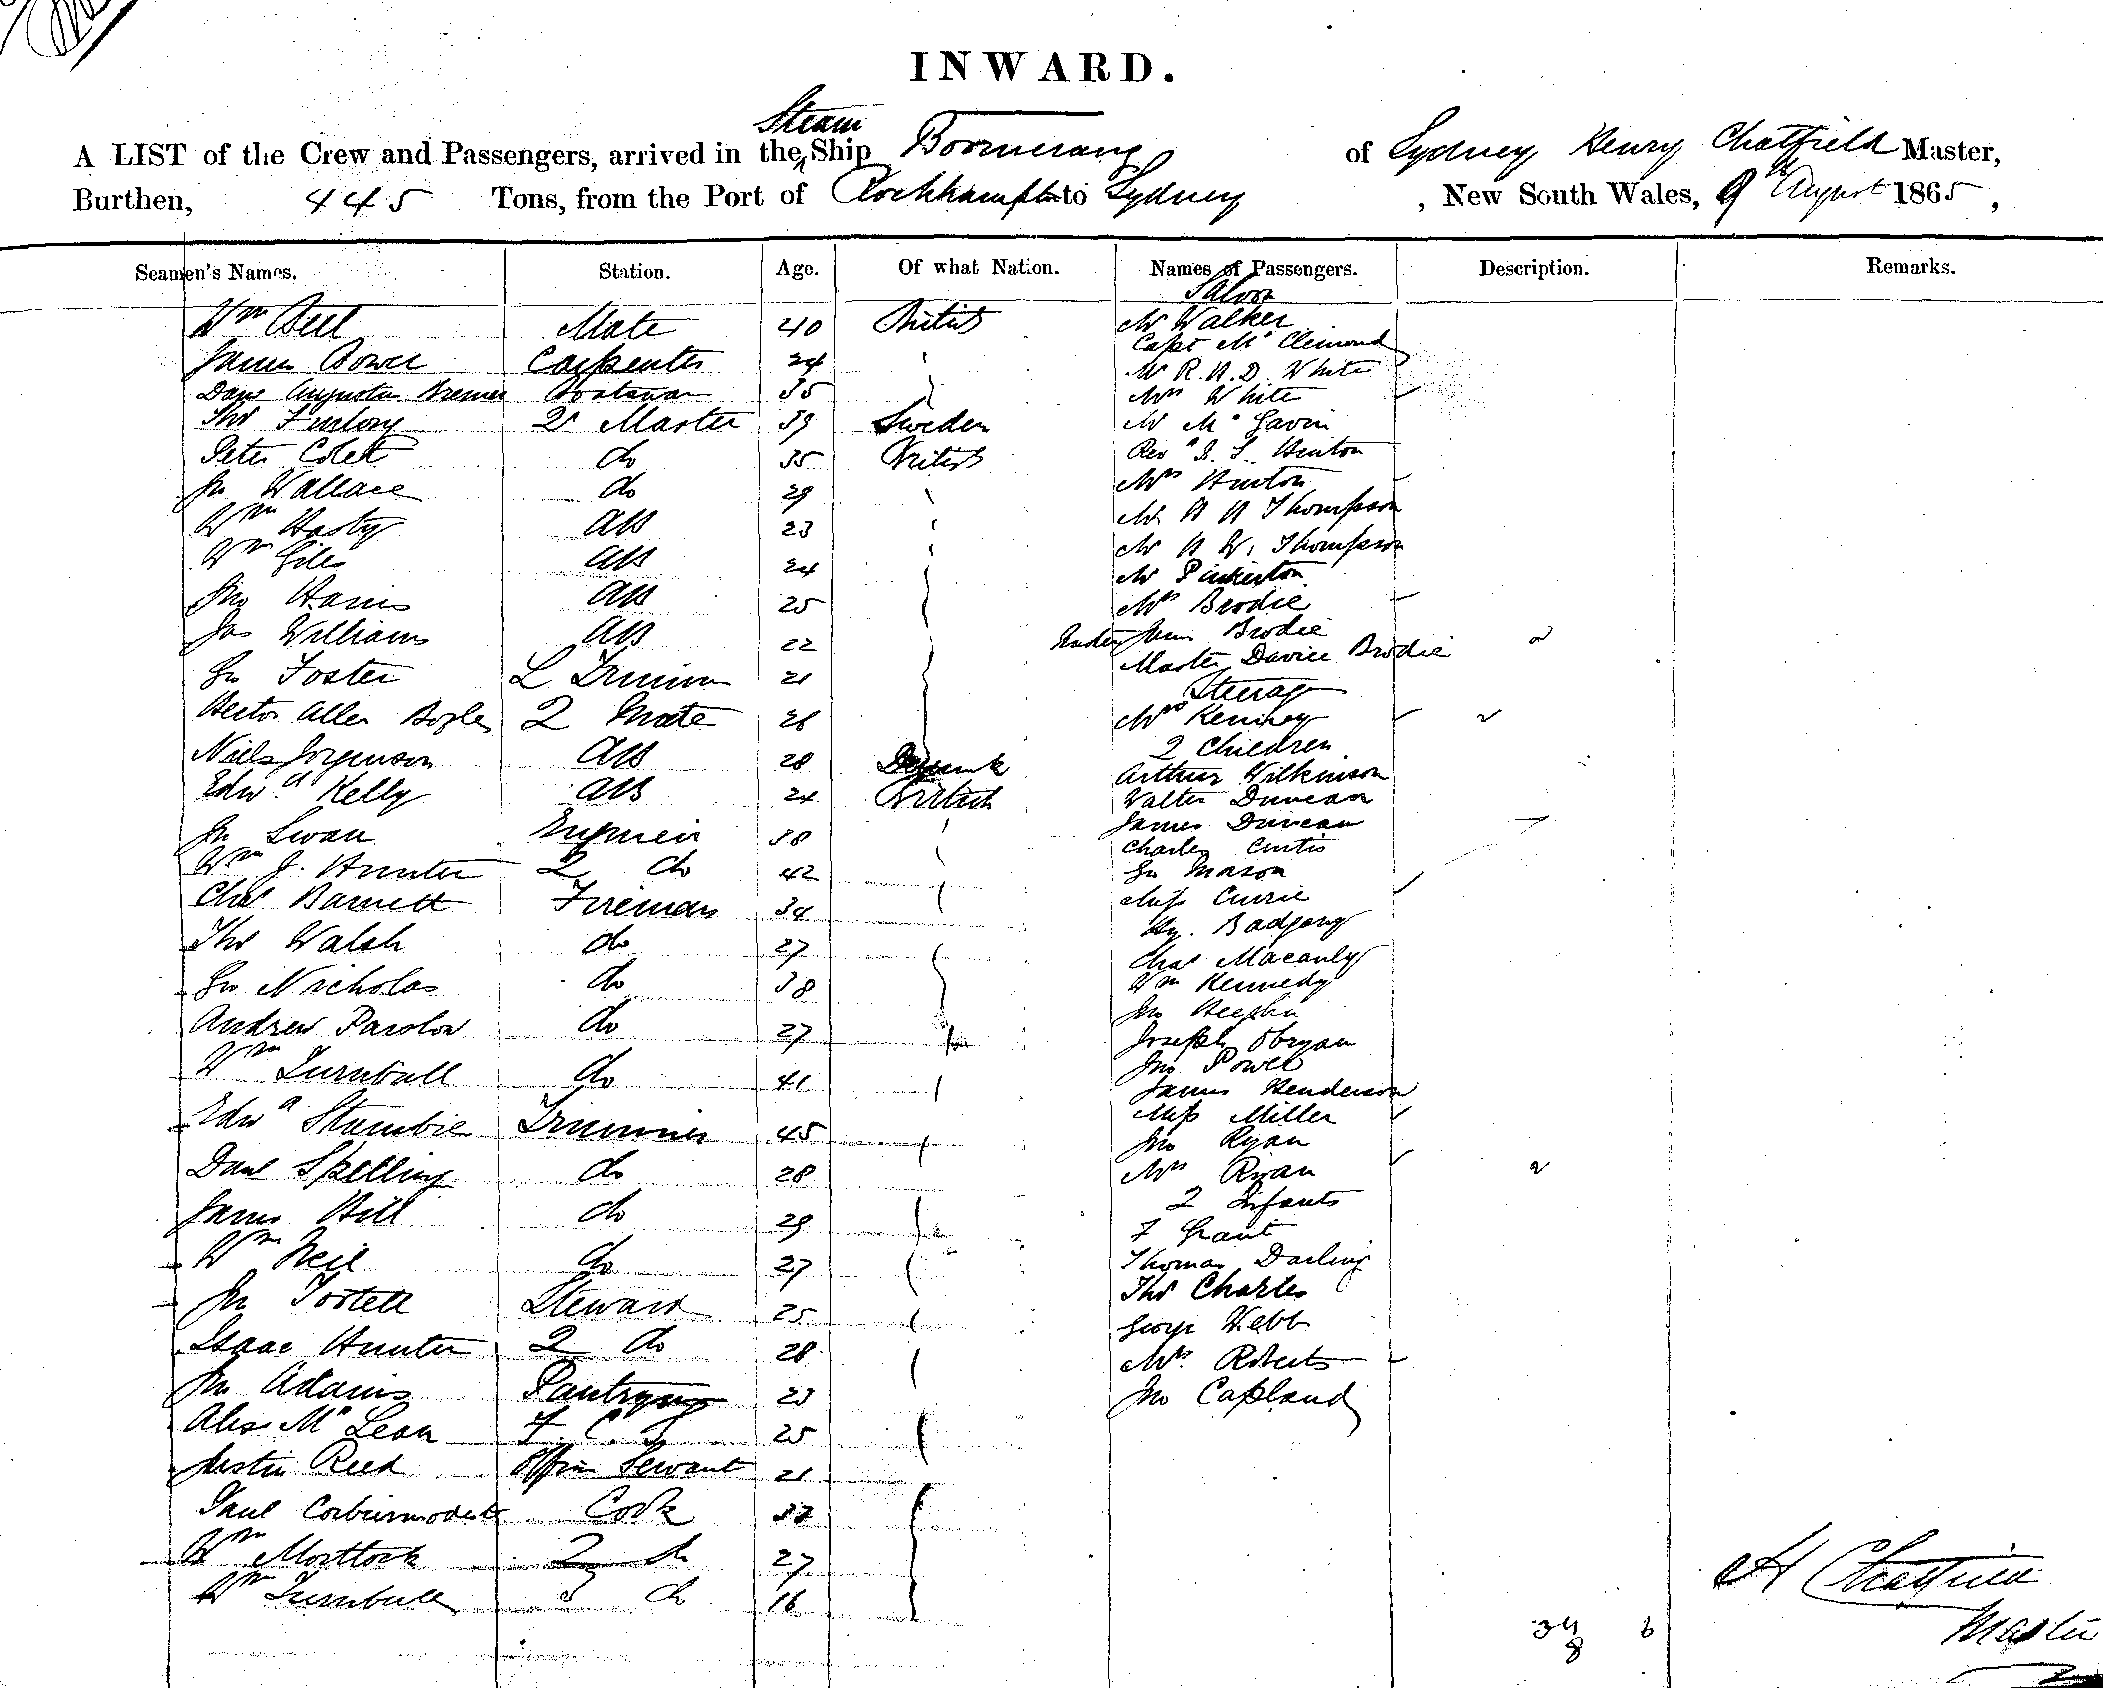 INWARD.
Steam
A LIST of the Crew and Passengers, arrived in the Ship Boomerang of Sydney Henry Chatfield Master,
Burthen, 445 Tons, from the Port of Rockhampton to Sydney , New South Wales, 9th August 1865 ,
Seamen's Names. Station. Age. Of what Nation. Names of Passengers. Description. Remarks.
Saloon
Wm Bell Mate 40 British Mr Walker
Capt Mc
James Bower Carpenter 24 Mr R. H. D. White
Augustus Boatswain 35 Mrs White
Thos Finlay Qr Master 39 Sweden Mr McGavin
Peter do 35 British Revd Hinton
Jn Wallace do 29 Mrs Hinton
Wm Hasty AB 23 Mr H H Thompson
Wm Giles AB 24 Mr H W. Thompson
Mr Pinkerton
Jno Harris AB 25 Mrs Brodie
Jas Williams AB 22 Brodie
Master David Brodie
Jn Foster L Trimmer 21 Steerage
Hector Allen 2 Mate 26 Mrs
2 Children
Niels Jorgenson AB 28 Denmark Arthur Wilkinson
Edwd Kelly AB 24 British Walter Duncan
Jn Swan Engineer 38 James Duncan
Charles Curtis
Wm J. Hunter 2 do 42 Jn Mason
Chas Barnett Fireman 34 Miss Currie
Hy. Badgery
Thos Walsh do 27 Chas Macauly
Jn Nicholas do 38 Wm Kennedy
Jno
Andrew Parslow do 27 Joseph Obryan
Jno Power
Wm Turnbull do 41 James Henderson
Edwd Trimmer 45 Miss Miller
Jno Ryan
Danl Spelling do 28 Mrs Ryan
2 Infants
James Hill do 29 F Grant
Wm Neil do 27 Thomas Darling
Jn Steward 25 Thos Charles
George Webb
Isaac Hunter 2 do 28 Mrs Roberts
Jn Adams Pantryman 23 Jno Capland
Alex McLean F. C. 25
Reed Servant 21
Paul Cook 37
Wm Mortlock 2 do 27
Wm Turnbull 3 do 16
H Chatfield
34 6
8
Master